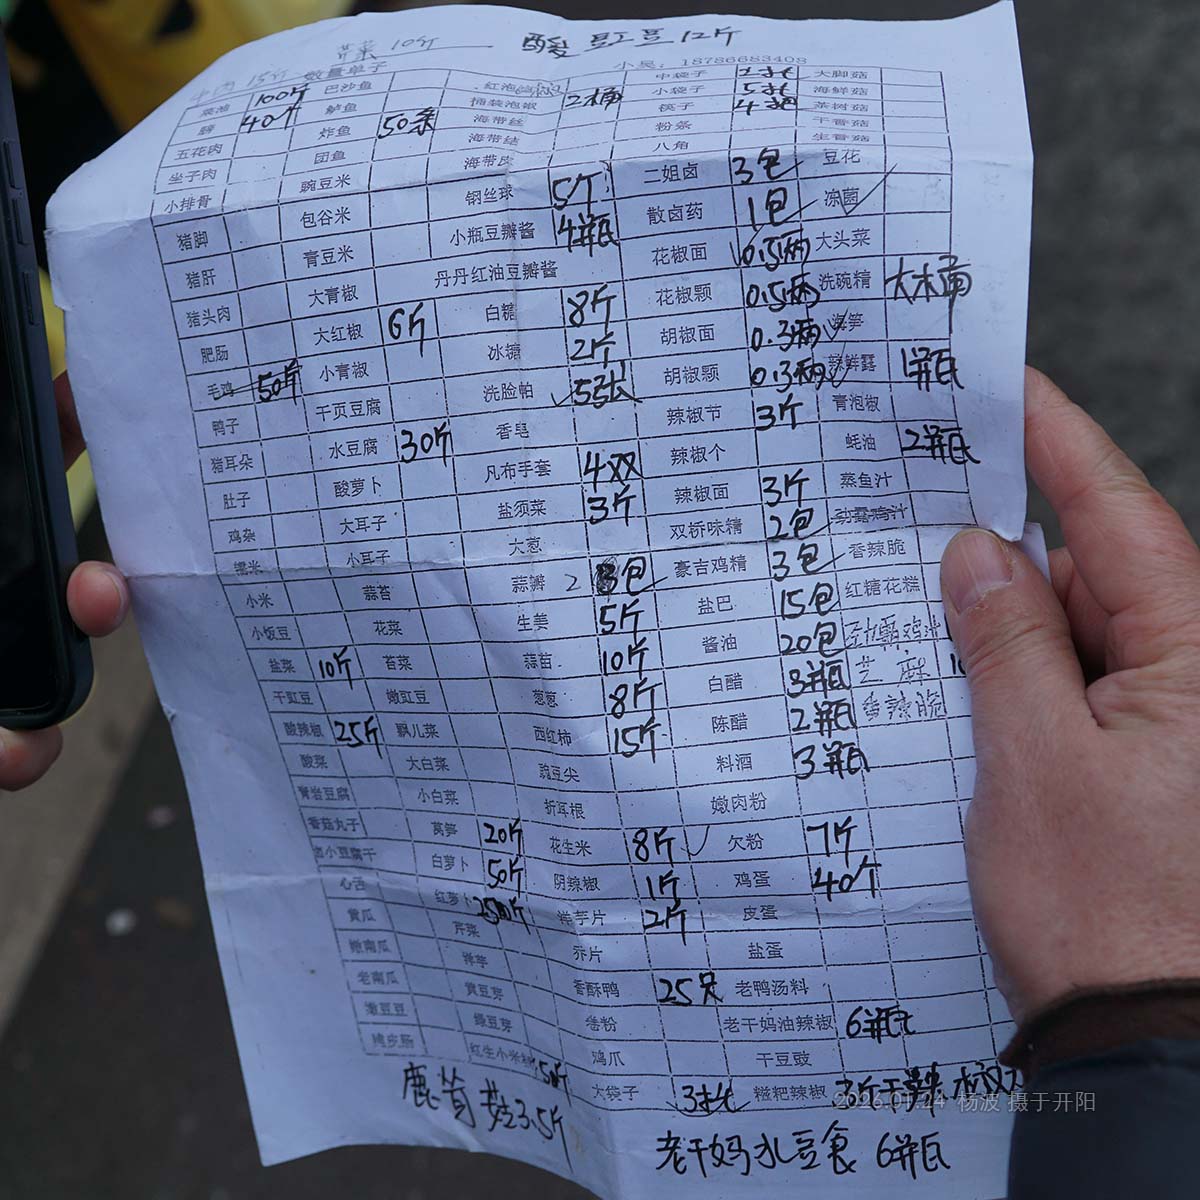 芹菜 10斤 酸豇豆12斤
15斤 数量单子 小吴：18786683408
菜油 100斤 巴沙鱼 红泡 中袋子 2扎 大脚菇
40个 鲈鱼 桶装泡椒 2桶 小袋子 5扎 海鲜菇
五花肉 炸鱼 50条 海带丝 筷子 4把 茶树菇
坐子肉 团鱼 海带结 粉条 干香菇
小排骨 豌豆米 海带皮 八角 生香菇
猪脚 包谷米 钢丝球 5个 二姐卤 3包 豆花
猪肝 青豆米 小瓶豆瓣酱 4瓶 散卤药 1包 凉菌
猪头肉 大青椒 丹丹红油豆瓣酱 花椒面 0.5两 大头菜
肥肠 大红椒 6斤 白糖 8斤 花椒颗 0.5两 洗碗精 大木桶
毛鸡 50斤 小青椒 冰糖 2斤 胡椒面 0.3两 海笋
鸭子 干页豆腐 洗脸帕 5张 胡椒颗 0.3两 辣鲜露 1瓶
猪耳朵 水豆腐 30斤 香皂 辣椒节 3斤 青泡椒
肚子 酸萝卜 凡布手套 4双 辣椒个 蚝油 2瓶
鸡杂 大耳子 盐须菜 3斤 辣椒面 3斤 蒸鱼汁
糯米 小耳子 大葱 双桥味精 2包 劲霸鸡汁
小米 蒜苔 蒜瓣 2 包 豪吉鸡精 3包 香辣脆
小饭豆 花菜 生姜 5斤 盐巴 15包 红糖花糕
盐菜 10斤 苔菜 蒜苗 10斤 酱油 20包 劲霸鸡汁
干豇豆 嫩豇豆 葱葱 8斤 白醋 3瓶 芝麻
酸辣椒 25斤 瓢儿菜 西红柿 15斤 陈醋 2瓶 香辣脆
酸菜 大白菜 豌豆尖 料酒 3瓶
青岩豆腐 小白菜 折耳根 嫩肉粉
香菇丸子 莴笋 20斤 花生米 8斤 欠粉 7斤
小豆腐干 白萝卜 50斤 阴辣椒 1斤 鸡蛋 40个
心舌 红萝卜 洋芋片 2斤 皮蛋
黄瓜 芹菜 乔片 盐蛋
嫩南瓜 洋芋 香酥鸭 25只 老鸭汤料
老南瓜 黄豆芽 卷粉 老干妈油辣椒 6瓶
嫩豆豆 绿豆芽 鸡爪 干豆豉
红生小米椒 50斤 大袋子 3扎 糍粑辣椒 3斤
鹿茸菇3.5斤
老干妈水豆食 6瓶
2026.01.24 杨波 摄于开阳